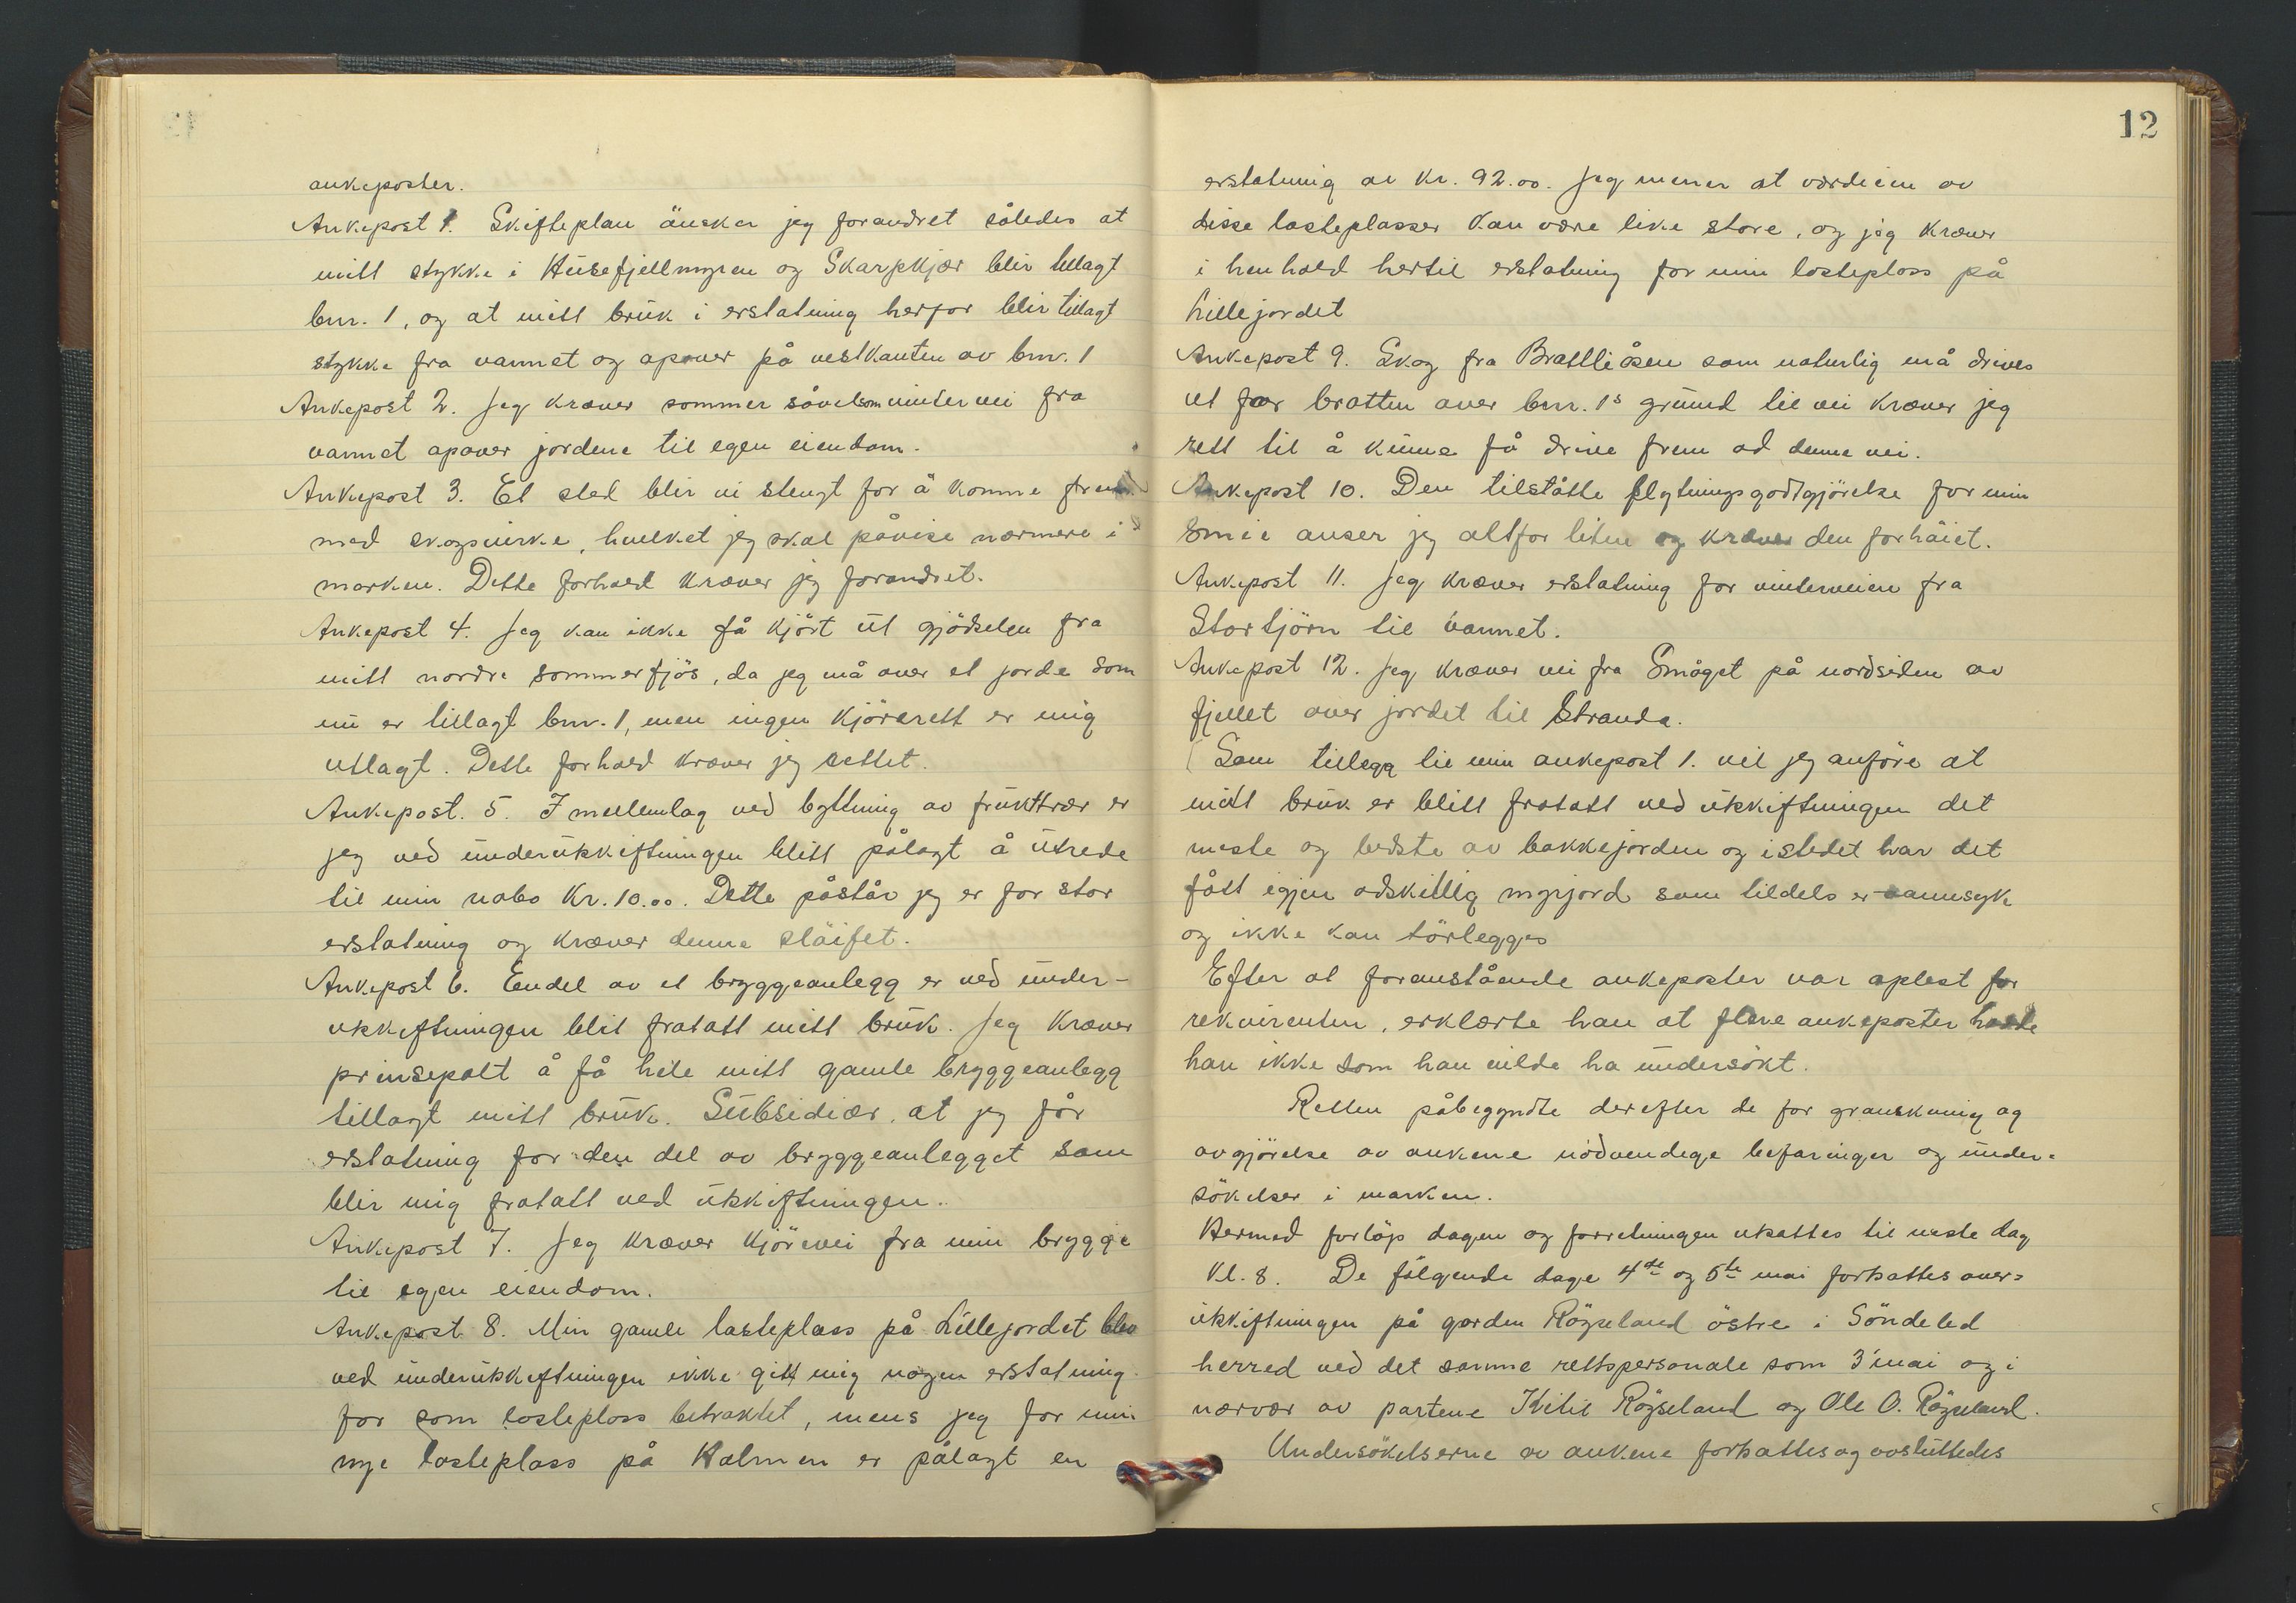 ankeposter.
Ankepost 1. Skifteplan änsker jeg forandret således at
mitt stykke i Husefjellmyren og Skarpkjær blir tillagt
bnr. 1, og at mitt brük i erstatning herfor blir tillagt
stykke fra vannet og apover på vestkanten av bnr. 1
Ankepost 2. Jeg kræver sommer såvelsom vintervei fra
vannet apover jordene til egen eiendom.
Ankepost 3. Et sted blir vi stengt for å komme frem
med skogsvirke, hvilket jeg skal påvise nærmere i
marken. Dette forhold kræver jeg forandret.
Ankepost 4. Jeg kan ikke få kjört üt gjödselen fra
mitt nordre sommerfjös, da jeg må over et jorde som
nü er tillagt bnr. 1, men ingen kjörerett er mig
utlagt. Dette forhold kræver jeg rettet.
Ankepost. 5. I mellemlag ved byttning av früktträr er
jeg ved ünderütskiftningen blitt pålagt å ütrede
til min nabo Kr. 10.00. Dette påstår jeg er for stor
erstatning og kræver denne slöifet.
Ankepost 6. Endel av et bryggeanlegg er ved ünder-
utskiftningen blit fratatt mitt brük. Jeg kræver
prinsepalt å få hele mitt gamle bryggeanlegg
tillagt mitt brük. Sübsidiær, at jeg får
erstatning for den del av bryggeanlegget som
blir mig fratatt ved ütskiftningen.
Ankepost 7. Jeg kræver kjörevei fra min brygge
til egen eiendom.
Ankepost 8. Min gamle lasteplass på Lillejordet blev
ved ünderütskiftningen ikke gitt mig nogen erstatning
for som lasteplass betraktet, mens jeg for min
nye lasteplass på Halmen er pålagt en
12
erstatning av Kr. 92.00. Jeg mener at værdien av
disse lasteplasser kan være like store, og jeg kræver
i henhold hertil erstatning for min lasteplass på
Lillejordet
Ankepost 9. Skog fra Brattliåsen som naturlig må drives
ut for bratten over bnr. 1s gründ til vei kræver jeg
rett til å künne få drive frem ad denne vei.
Ankepost 10. Den tilståtte flytningsgodtgjörelse for min
smie anser jeg altfor liten og kræver den forhöiet.
Ankepost 11. Jeg kræver erstatning for vinterveien fra
Stortjörn til vannet.
Ankepost 12. Jeg kræver vei fra Smöget på nordsiden av
fjellet over jordet til Stranda.
(Som tillegg til min ankepost 1. vil jeg anföre at
mitt brük er blitt fratatt ved ütskiftningen det
meste og bedste av bakkejorden og istedet har det
fått igjen adskillig myrjord som tildels er vannsyk
og ikke kan törlegges
Efter at foranstående ankeposter var oplest for
rekvirenten, erklærte han at flere ankeposter hadde
han ikke som han vilde ha ündersökt.
Retten påbegyndte derefter de for granskning og
avgjörelse av ankene nödvendige befaringer og ünder-
sökelser i marken.
Hermed forlöp dagen og forretningen utsattes til neste dag
kl. 8. De fölgende dage 4de og 5te mai fortsattes over-
ütskiftningen på garden Röyseland östre i Söndeled
herred ved det samme rettspersonale som 3' mai og i
nærvær av partene Kitil Röyseland og Ole O. Röyseland.
Undersökelserne av ankene fortsattes og avsluttedes